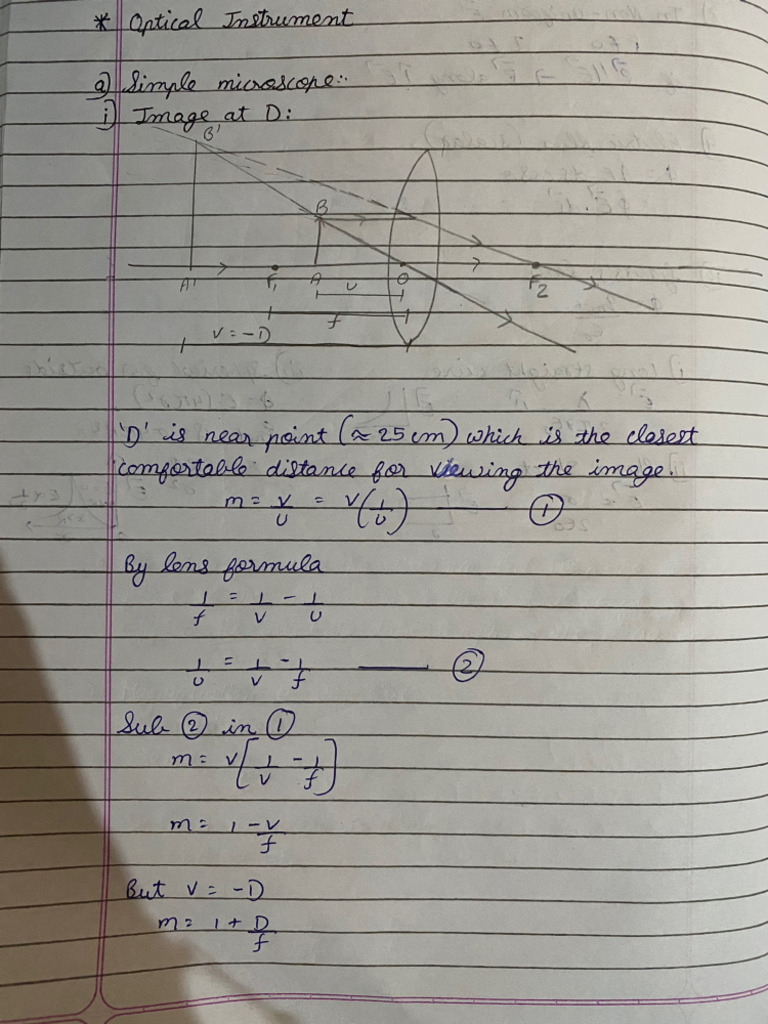 * Optical Instrument
a) Simple microscope:
i) Image at D:
B'
B
A' F₁ A u O F₂
f
v = -D
'D' is near point (≈ 25 cm) which is the closest
comfortable distance for viewing the image.
m = v/u = v(1/u) —— ①
By lens formula
1/f = 1/v - 1/u
1/u = 1/v - 1/f —— ②
Sub ② in ①
m = v[1/v - 1/f]
m = 1 - v/f
But v = -D
m = 1 + D/f